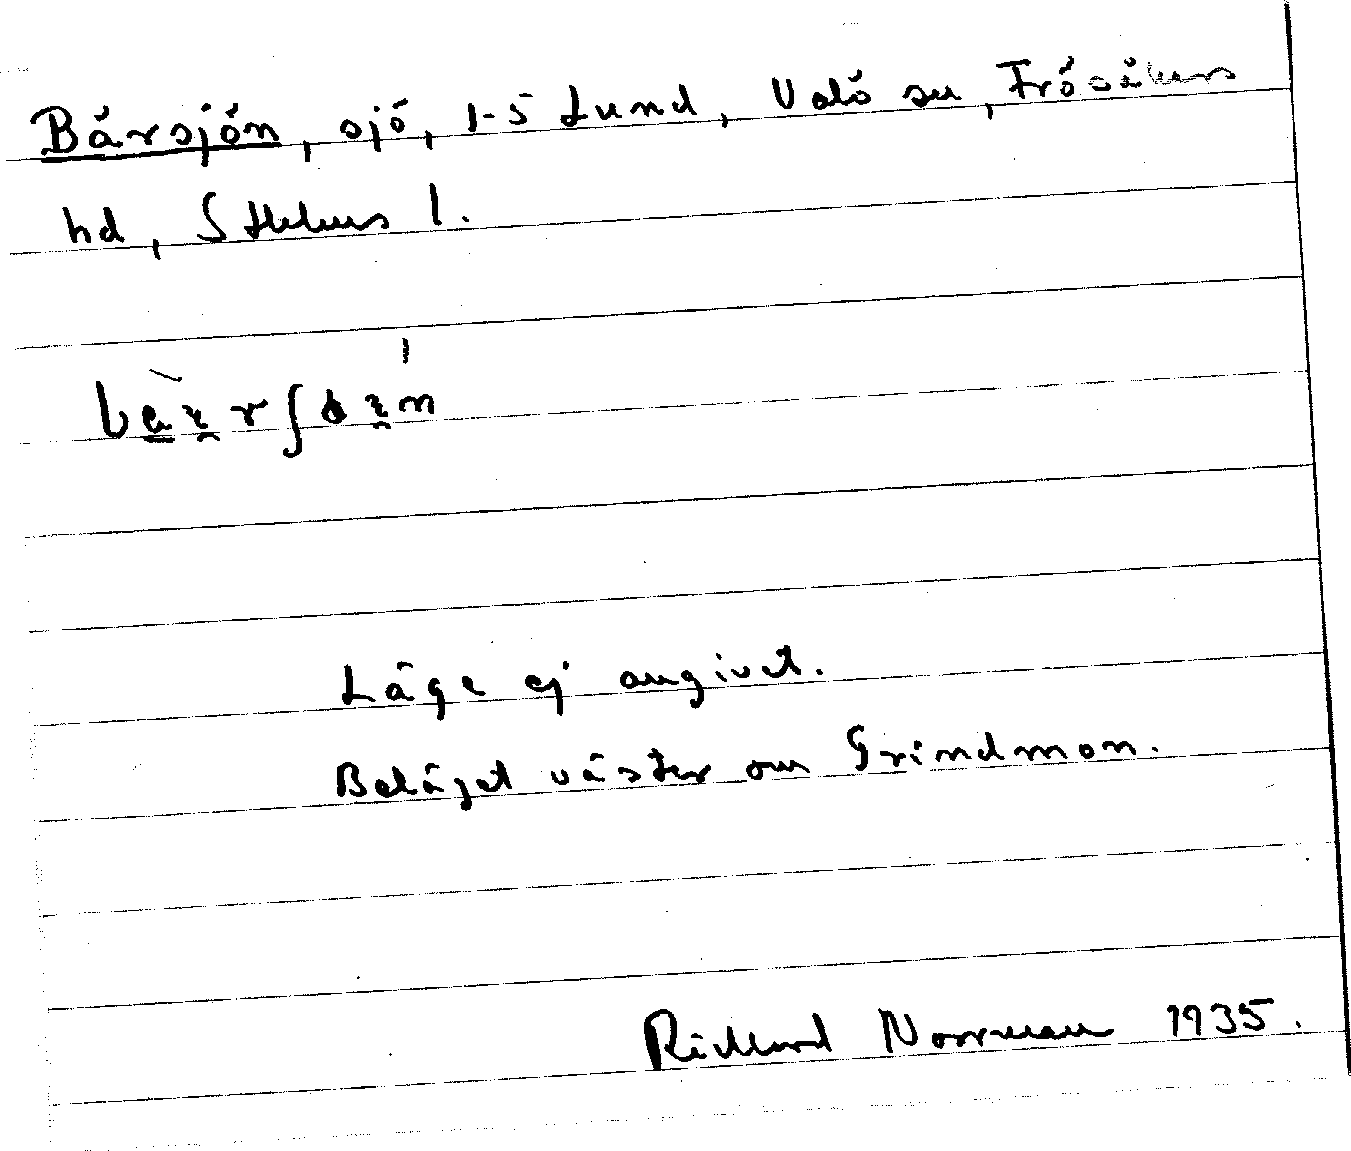 Bärsjön, sjö, 1-5 Lund, Valö sn, Frösåkers
hd, Sthlms l.
Läge ej angivet.
Beläget väster om Grindmon.
Richard Norrman 1935.